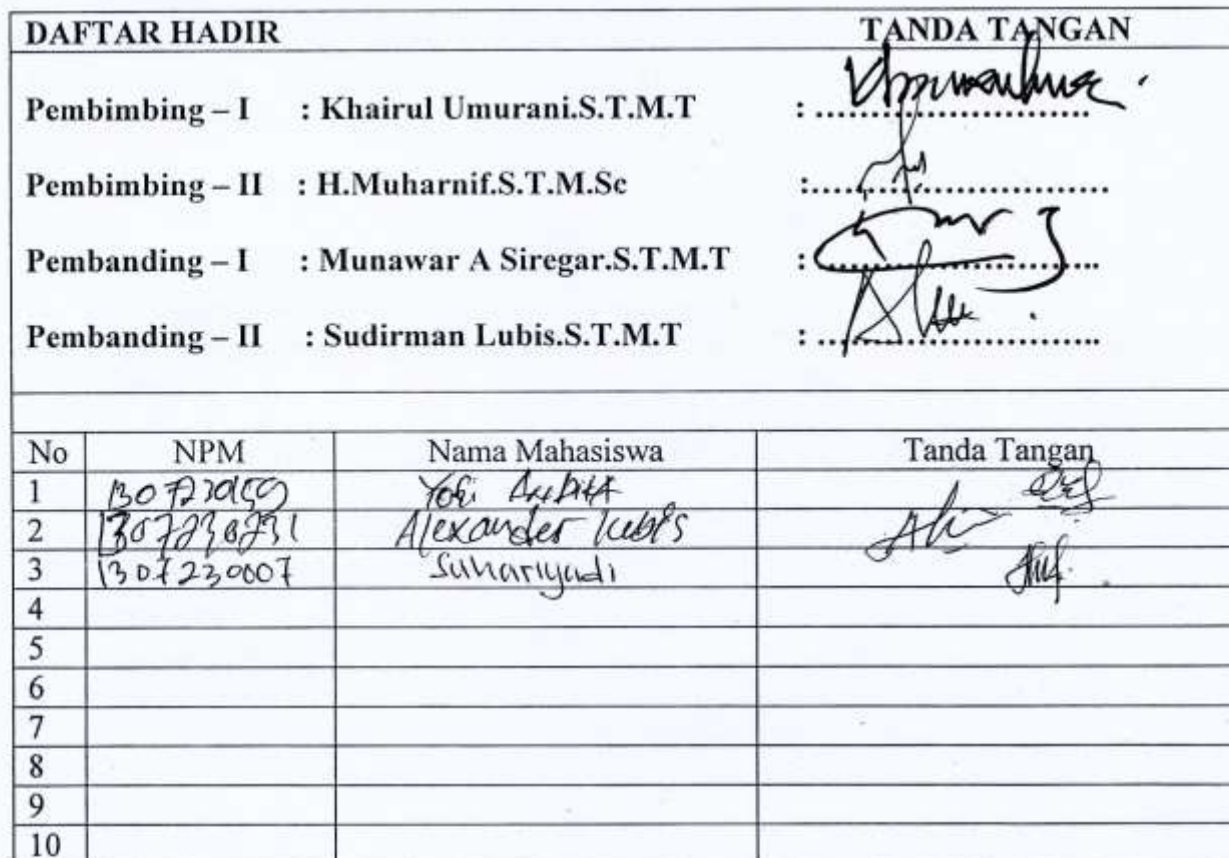 DAFTAR HADIR TANDA TANGAN
Pembimbing – I : Khairul Umurani.S.T.M.T : ..............................
Pembimbing – II : H.Muharnif.S.T.M.Sc :..............................
Pembanding – I : Munawar A Siregar.S.T.M.T : ..............................
Pembanding – II : Sudirman Lubis.S.T.M.T : ..............................
No NPM Nama Mahasiswa Tanda Tangan
1
2 1307230231 Alexander
3 1307230007 Suhariyadi
4
5
6
7
8
9
10